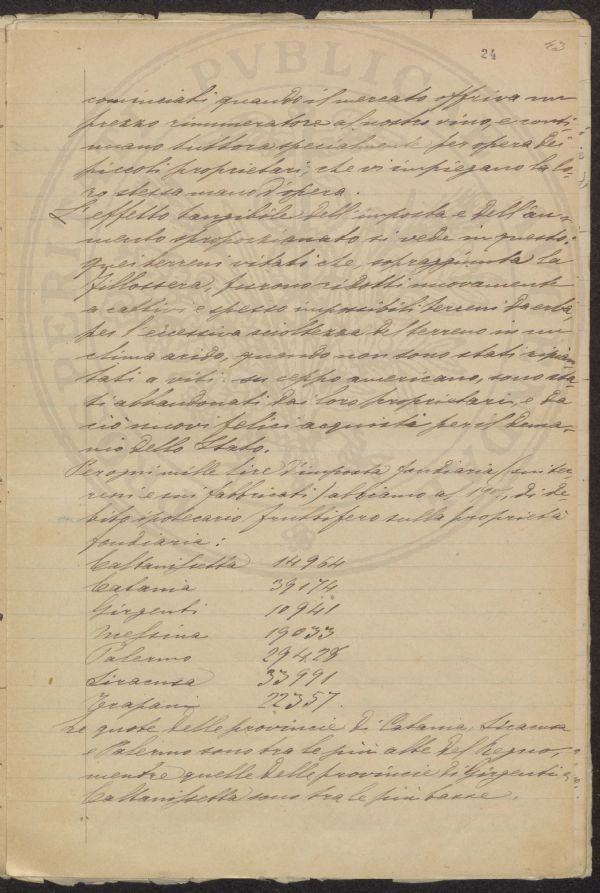 24
43
cominciati quando il mercato offriva un
prezzo rimuneratore al nostro vino, e conti-
nuano tuttora specialmente per opera dei
piccoli proprietari, che vi impiegano la lo-
ro stessa mano d'opera.
L'effetto tangibile dell'imposta e dell'au-
mento sproporzionato si vede in questo:
quei terreni vitati che, sopraggiunta la
fillossera, furono ridotti nuovamente
a cattivi e spesso impossibili terreni da erba
per l'eccessiva scioltezza del terreno in un
clima arido, quando non sono stati ripian-
tati a viti su ceppo americano, sono sta-
ti abbandonati dai loro proprietari, e da
ciò nuovi felici acquisti per il dema-
nio dello Stato.
Per ogni mille lire d'imposta fondiaria (sui ter-
reni e sui fabbricati) abbiamo al di de-
bito ipotecario fruttifero sulla proprietà
fondiaria:
Caltanissetta 14964
Catania 39174
Girgenti 10941
Messina 19033
Palermo 29428
Siracusa 33991
Trapani 22357
Le quote delle provincie di Catania, Siracusa
e Palermo sono tra le più alte del Regno,
mentre quelle delle provincie di Girgenti e
Caltanissetta sono tra le più basse.